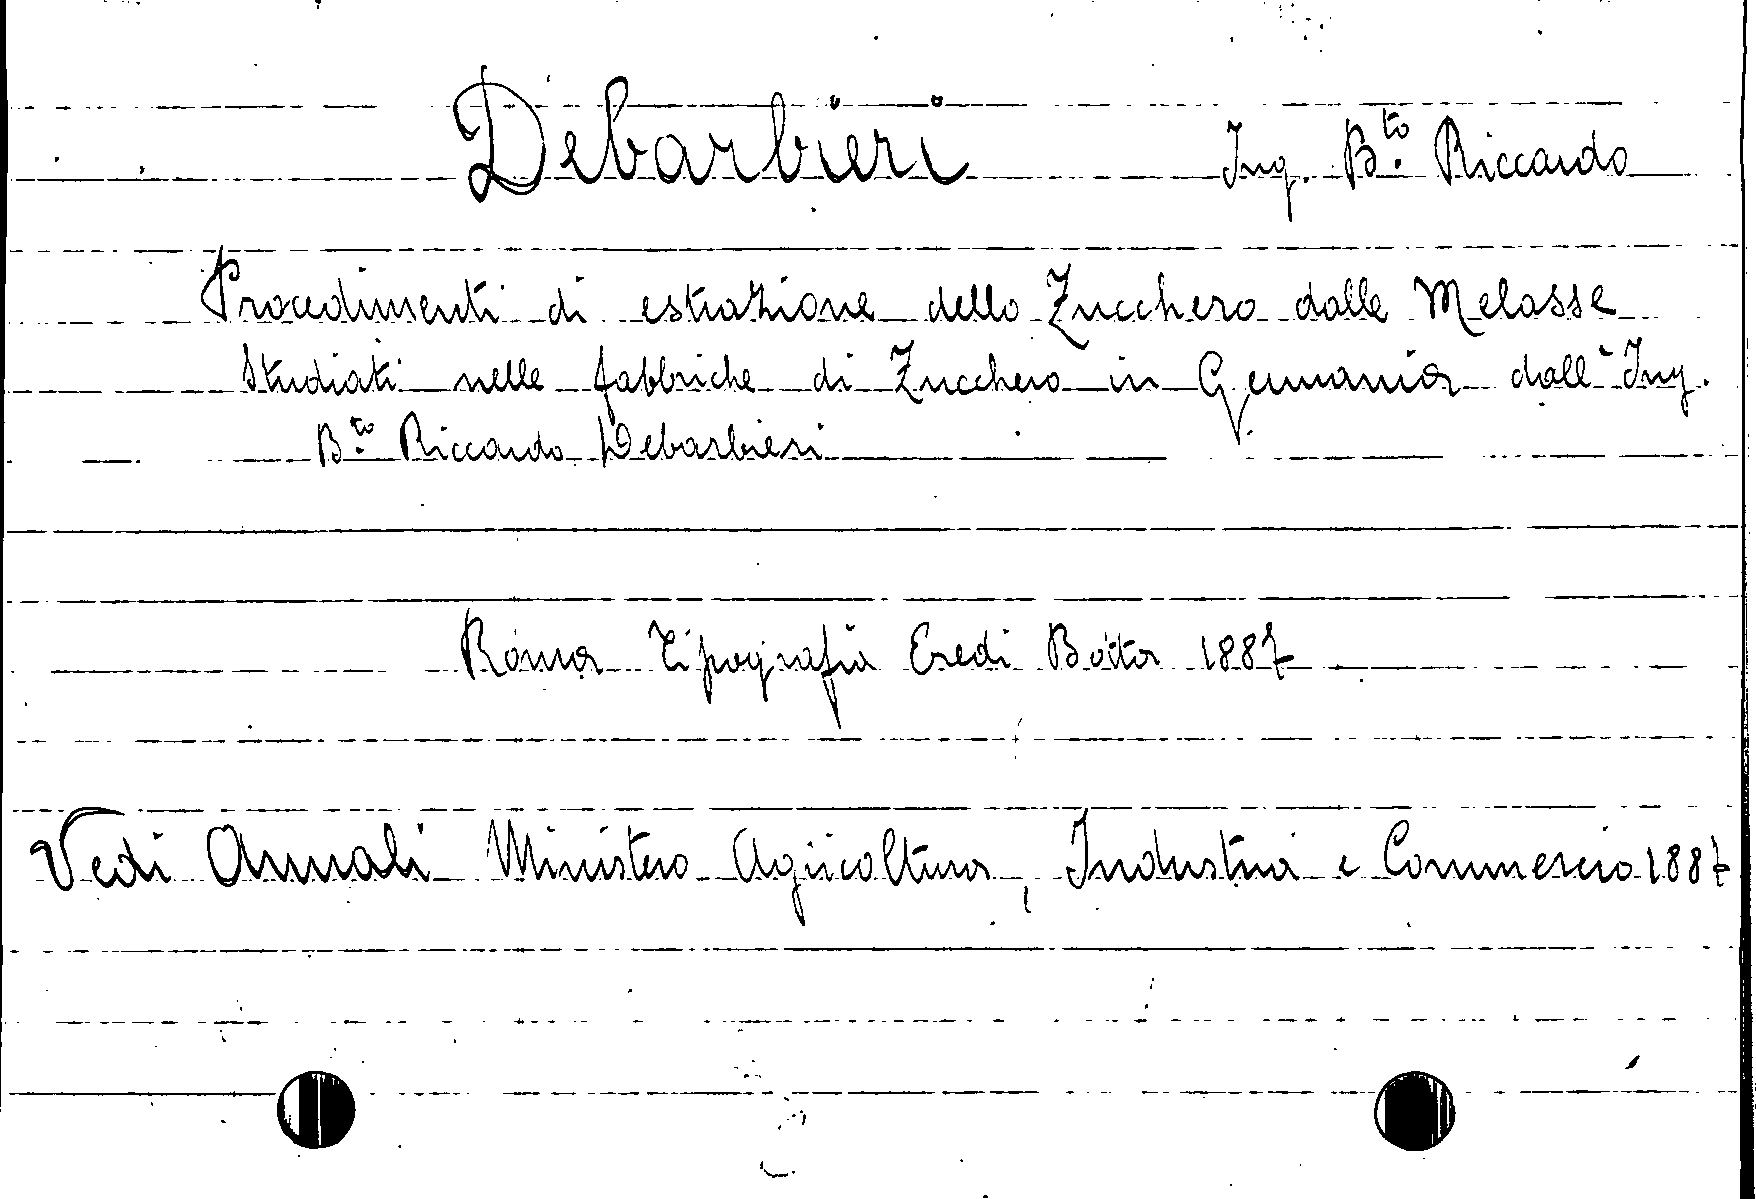 Debarbieri Ing. B.to Riccardo
Procedimenti di estrazione dello Zucchero dalle Melasse
Studiati nelle fabbriche di Zucchero in Germania dall'Ing.
B.to Riccardo Debarbieri
Roma Tipografia Eredi Botta 1887
Vedi Annali Ministero Agricoltura, Industria e Commercio 1887